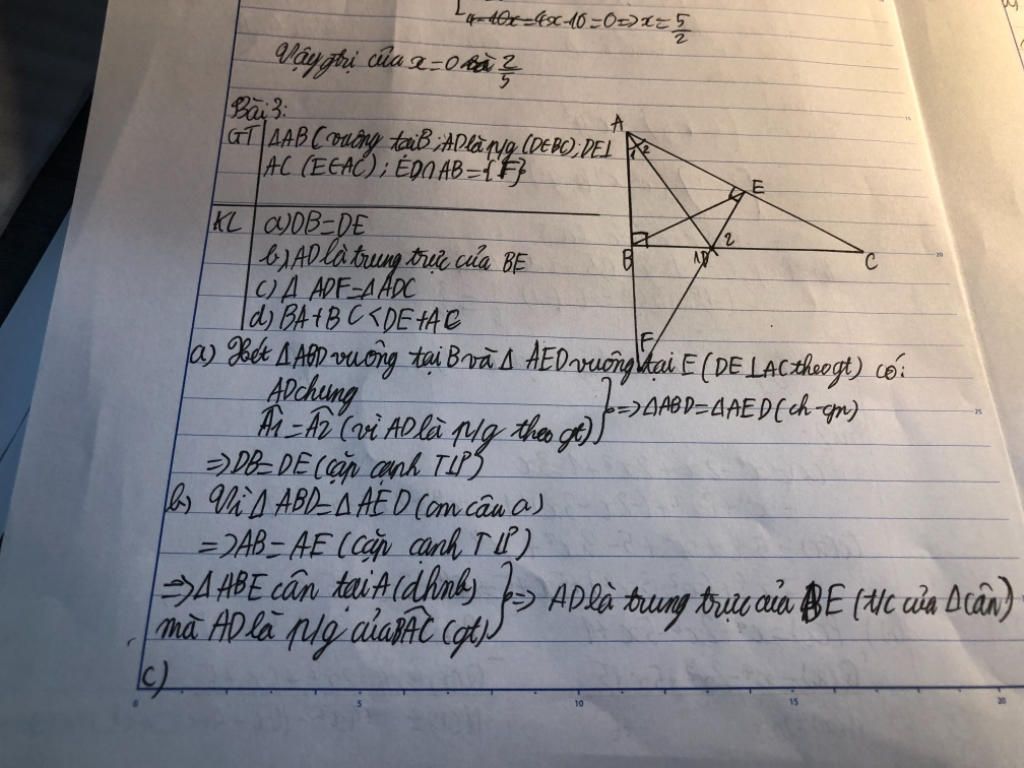 4-10x=4x-10=0=>x=5/2
Vậy gtrị của x=0 và 2/5
Bài 3:
GT ΔABC vuông tại B; AD là p/g (D∈BC); DE⊥
AC (E∈AC); ED∩AB={F}
KL a) DB=DE
b) AD là trung trực của BE
c) Δ ADF=ΔADC
d) BA+BC<DE+AC
A
1 2
E
B
1 D 2
C
F
a) Xét ΔABD vuông tại B và Δ AED vuông tại E (DE⊥AC theo gt) có:
AD chung
Â1=Â2 (vì AD là p/g theo gt) } => ΔABD=ΔAED (ch-gn)
=>DB=DE (cặp cạnh TƯ)
b) Vì ΔABD=ΔAED (cm câu a)
=>AB=AE (cặp cạnh TƯ)
=>ΔABE cân tại A (dhnb) } => AD là trung trực của BE (t/c của Δ cân)
mà AD là p/g của BAC (gt)
c)
0 5 10 15 20
15
20
25